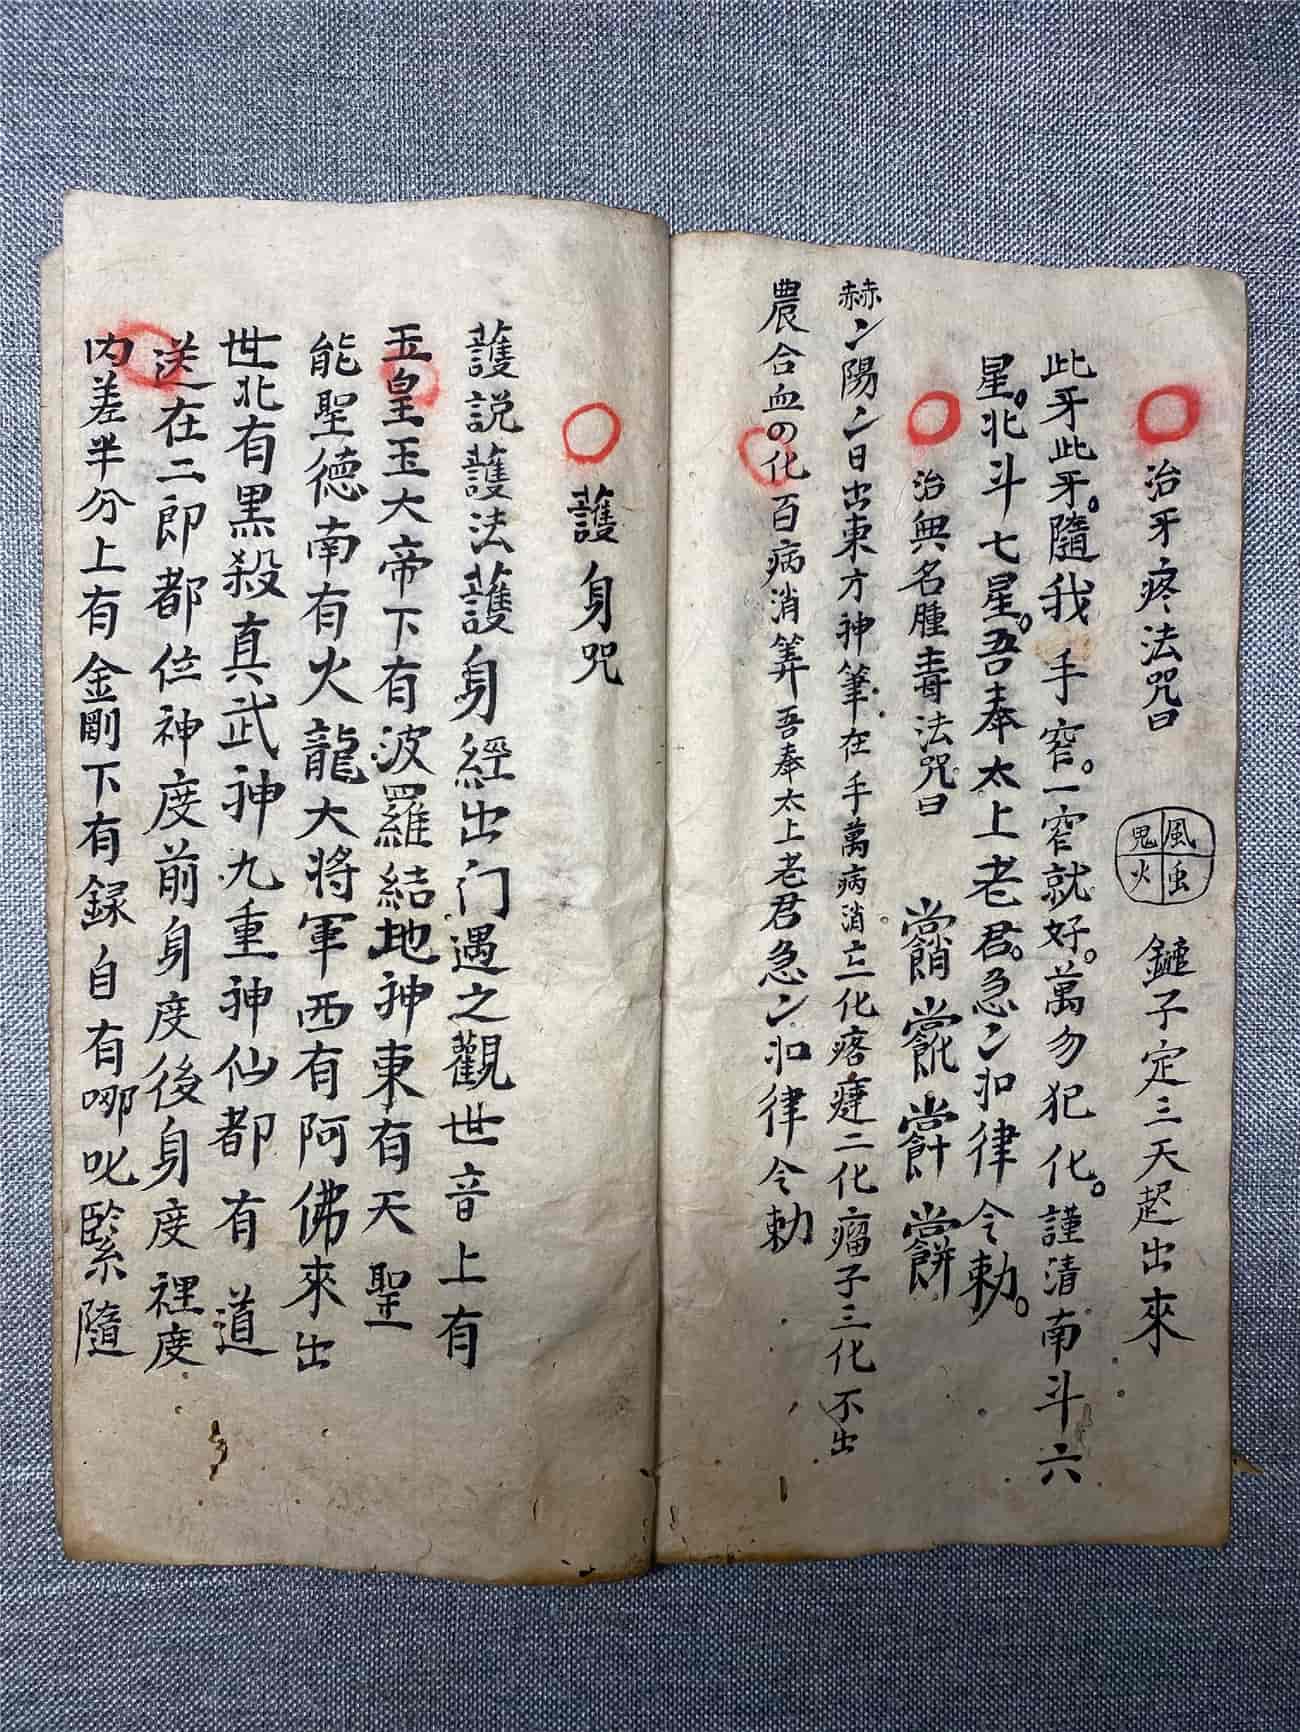 治牙疼法咒曰 風虫鬼火 鏈子定三天起出來
此牙此牙。隨我手窄。一窄就好。萬勿犯化。謹清南斗六
星。北斗七星。吾奉太上老君。急ン如律令勅。
治無名腫毒法咒曰
赫ン陽ン日出東方神筆在手萬病消亡一化疙瘩二化瘤子三化不出
農合血の化百病消筭吾奉太上老君急ン如律令勅
護身咒
護説護法護身經出门遇之觀世音上有
玉皇玉大帝下有波羅結地神東有天聖
能聖德南有火龍大将軍西有阿佛來出
世北有黑殺真武神九重神仙都有道
送在二郎都位神度前身度後身度裡度
内差半分上有金剛下有録自有哪叱緊隨